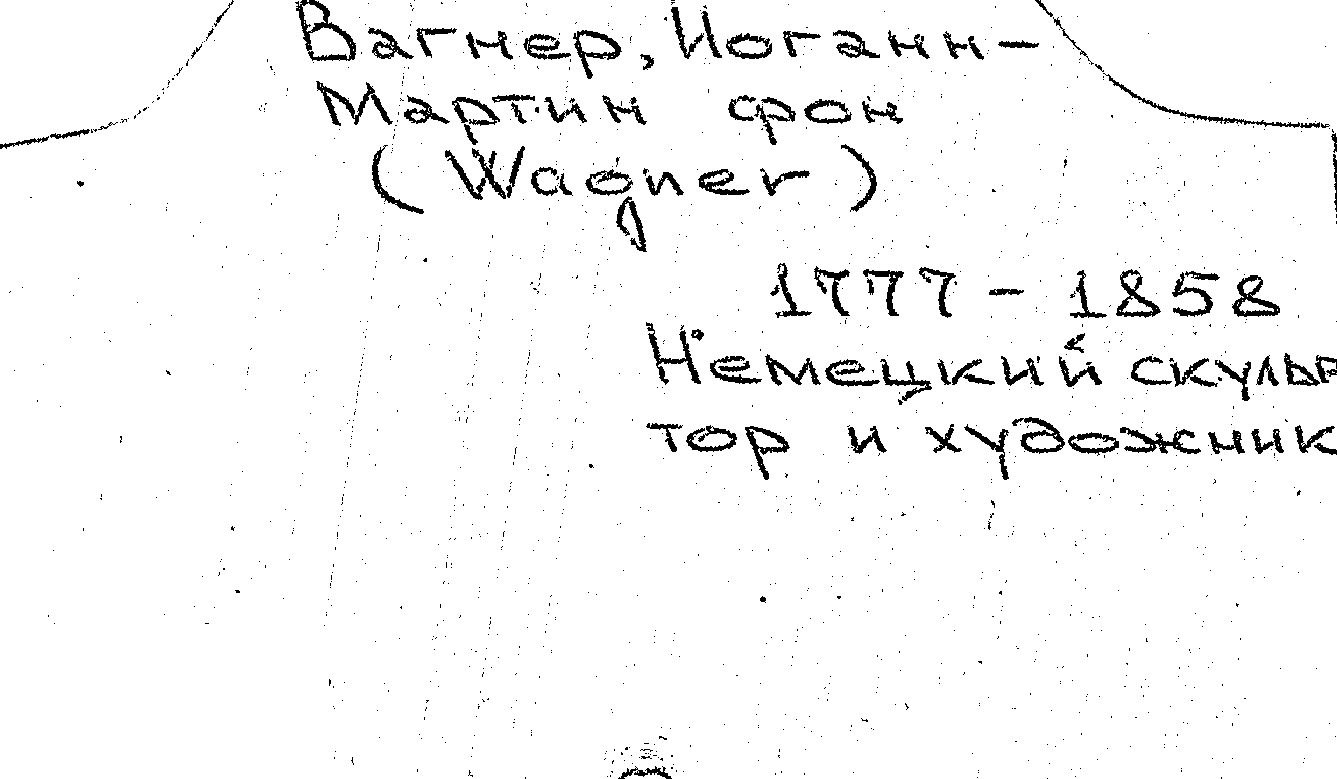 Вагнер, Иоганн-
Мартин фон
(Wagner)
1777 - 1858
Немецкий скульп
тор и художник